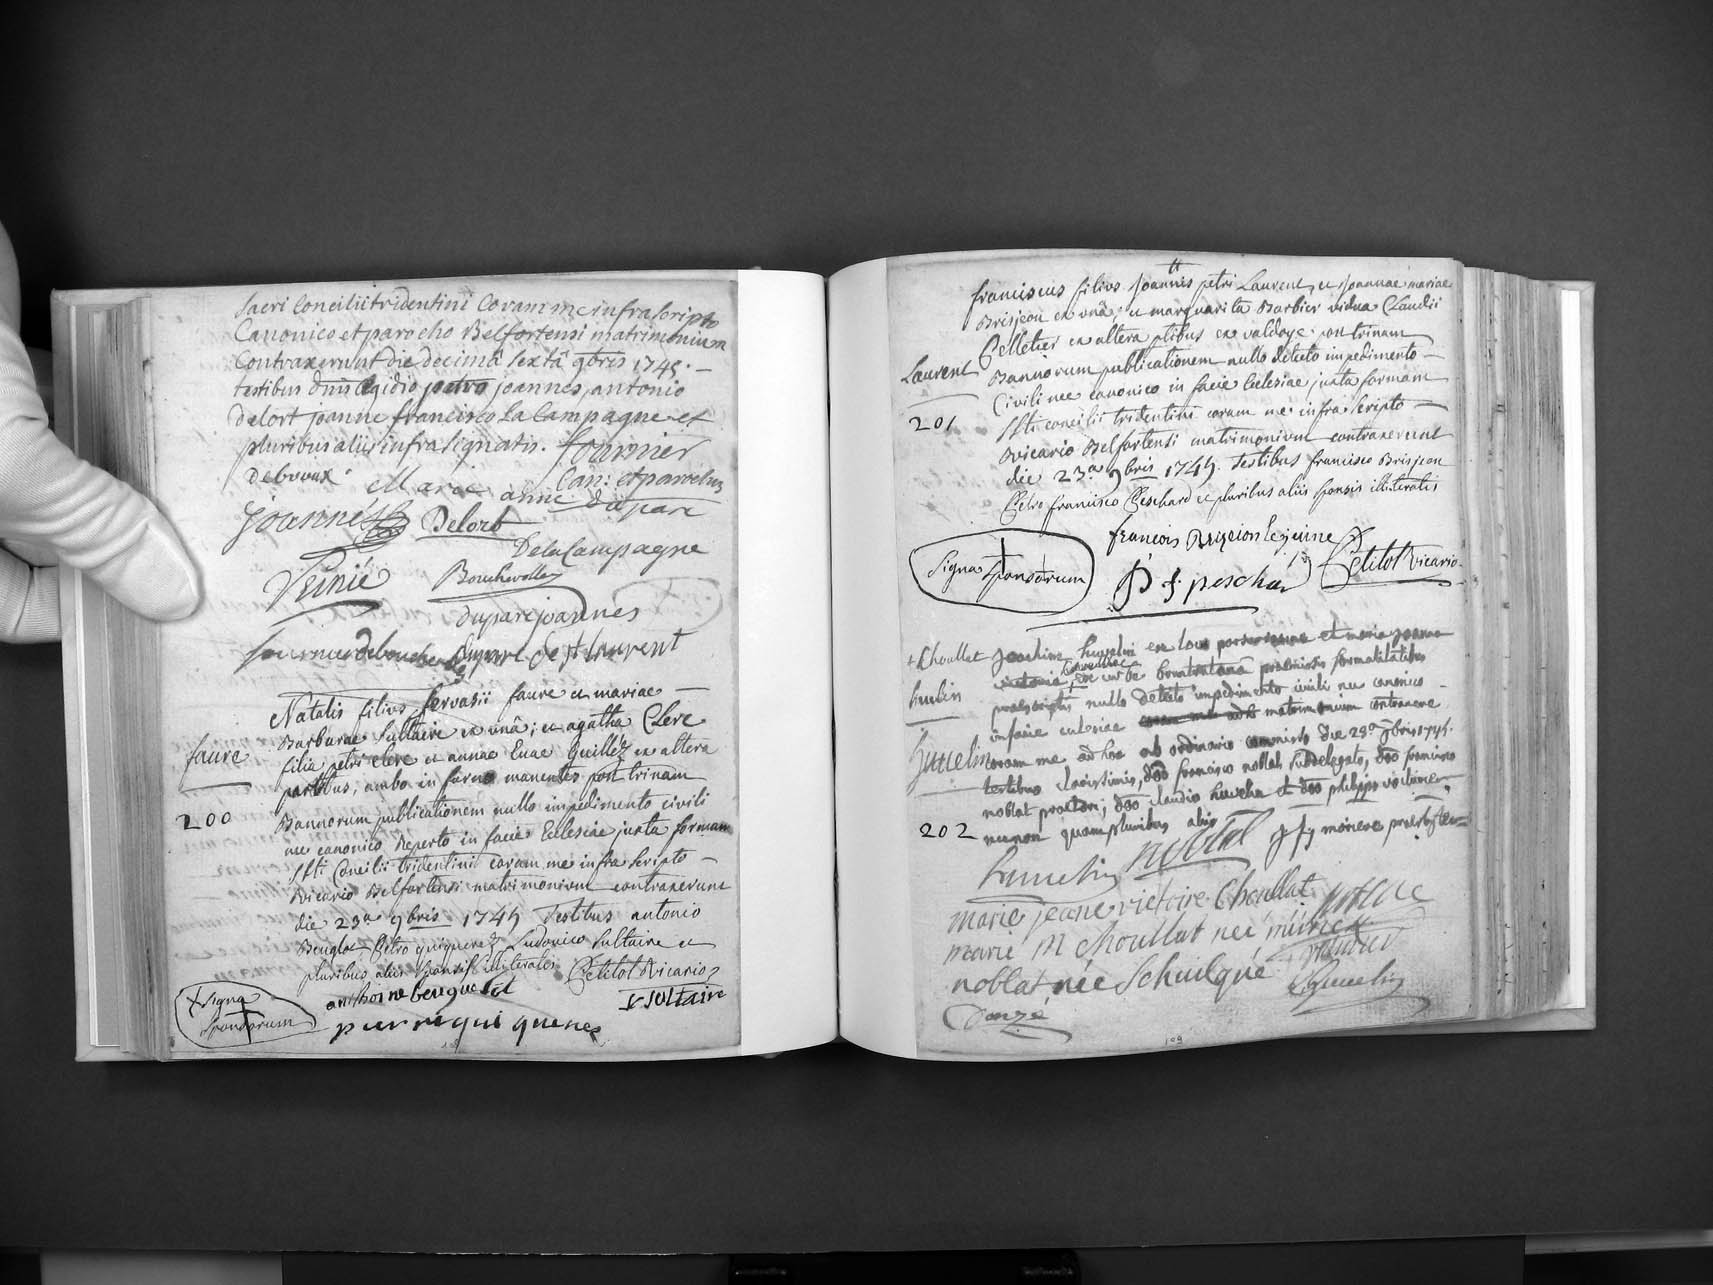 sacri Concilii tridentini Coram me infra scripto
Canonico et parocho Belfortensi matrimonium
Contraxerunt die decimâ sextâ 9bris 1745. —
testibus dnis Egidio petro joannes antonio
delort joanne francisco La Campagne et
pluribus aliis infra signatis. fournier
deboux Can: et parochus
Marie anne duparc
joannés Delort
De la Campagne
Pinié Bouchevolle
duparc joannes
duparc de st laurent
Natalis filius Gervasii faure et mariae —
Barbarae Sultaire ex unâ; et agatha Clere
faure
filia petri clere et annae Evae Guillez ex altera
partibus; ambo in furno manentes post trinam
200
Bannorum publicationem nullo impedimento civili
nec canonico reperto in facie Ecclesiae juxta formam
Sti Concilii tridentini coram me infra scripto —
vicario Belfortensi matrimonium contraxerunt
die 23a 9bris 1745 Testibus antonio
Benglot, Petro quiquerez Ludovico Sultaire et
pluribus aliis sponsis illiteratis Petitot vicario
+ signa
sponsorum
anthoine
L sultaire
pierre quiquerez
franciscus filius Joannis petri Laurent, et Joannae mariae
Brisjeon ex unâ; et marguarita Barbier vidua Claudii
Pelletier ex altera ptibus ex valdoye post trinam
Laurent
Bannorum publicationem nullo detecto impedimento —
Civili nec canonico in facie Ecclesiae juxta formam
201
Sti concilii tridentini coram me infra scripto —
vicario Belfortensi matrimonium contraxerunt
die 23a 9bris 1745. Testibus francisco Brisjeon
Petro francisco Peschard et pluribus aliis sponsis illiteratis
francois Brizion le jeune
Signa sponsorum
P f peschar
Petitot vicario
+ Choullat
Joachim huvelin ex loco et maria joanna
hulin
praescriptis nullo detecto impedimento civili nec canonico —
in facie ecclesiae matrimonium contraxere
huvelin
coram me ad hoc ab ordinario commisso die 29a 9bris 1745.
testibus clarissimis, dno francisco noblat subdelegato, dno francisco
noblat praetore; dno claudio huvelin et dno philippo
202
necnon quampluribus aliis
huvelin noblat
marie jeane victoire Choullat noblat
marie m Choullat neé
noblat née Schuilqué
Huvelin
109